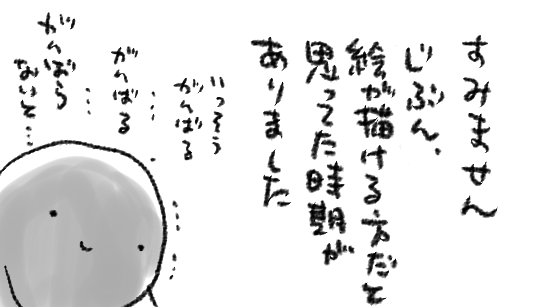 すみません
じぶん、
絵が描ける方だと
思ってた時期が
ありました
いっそう
がんばる
…
がんばる
…
がんばら
ないと…
……